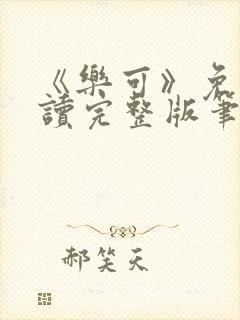 《樂可》免
讀完整版筆
郝笑天